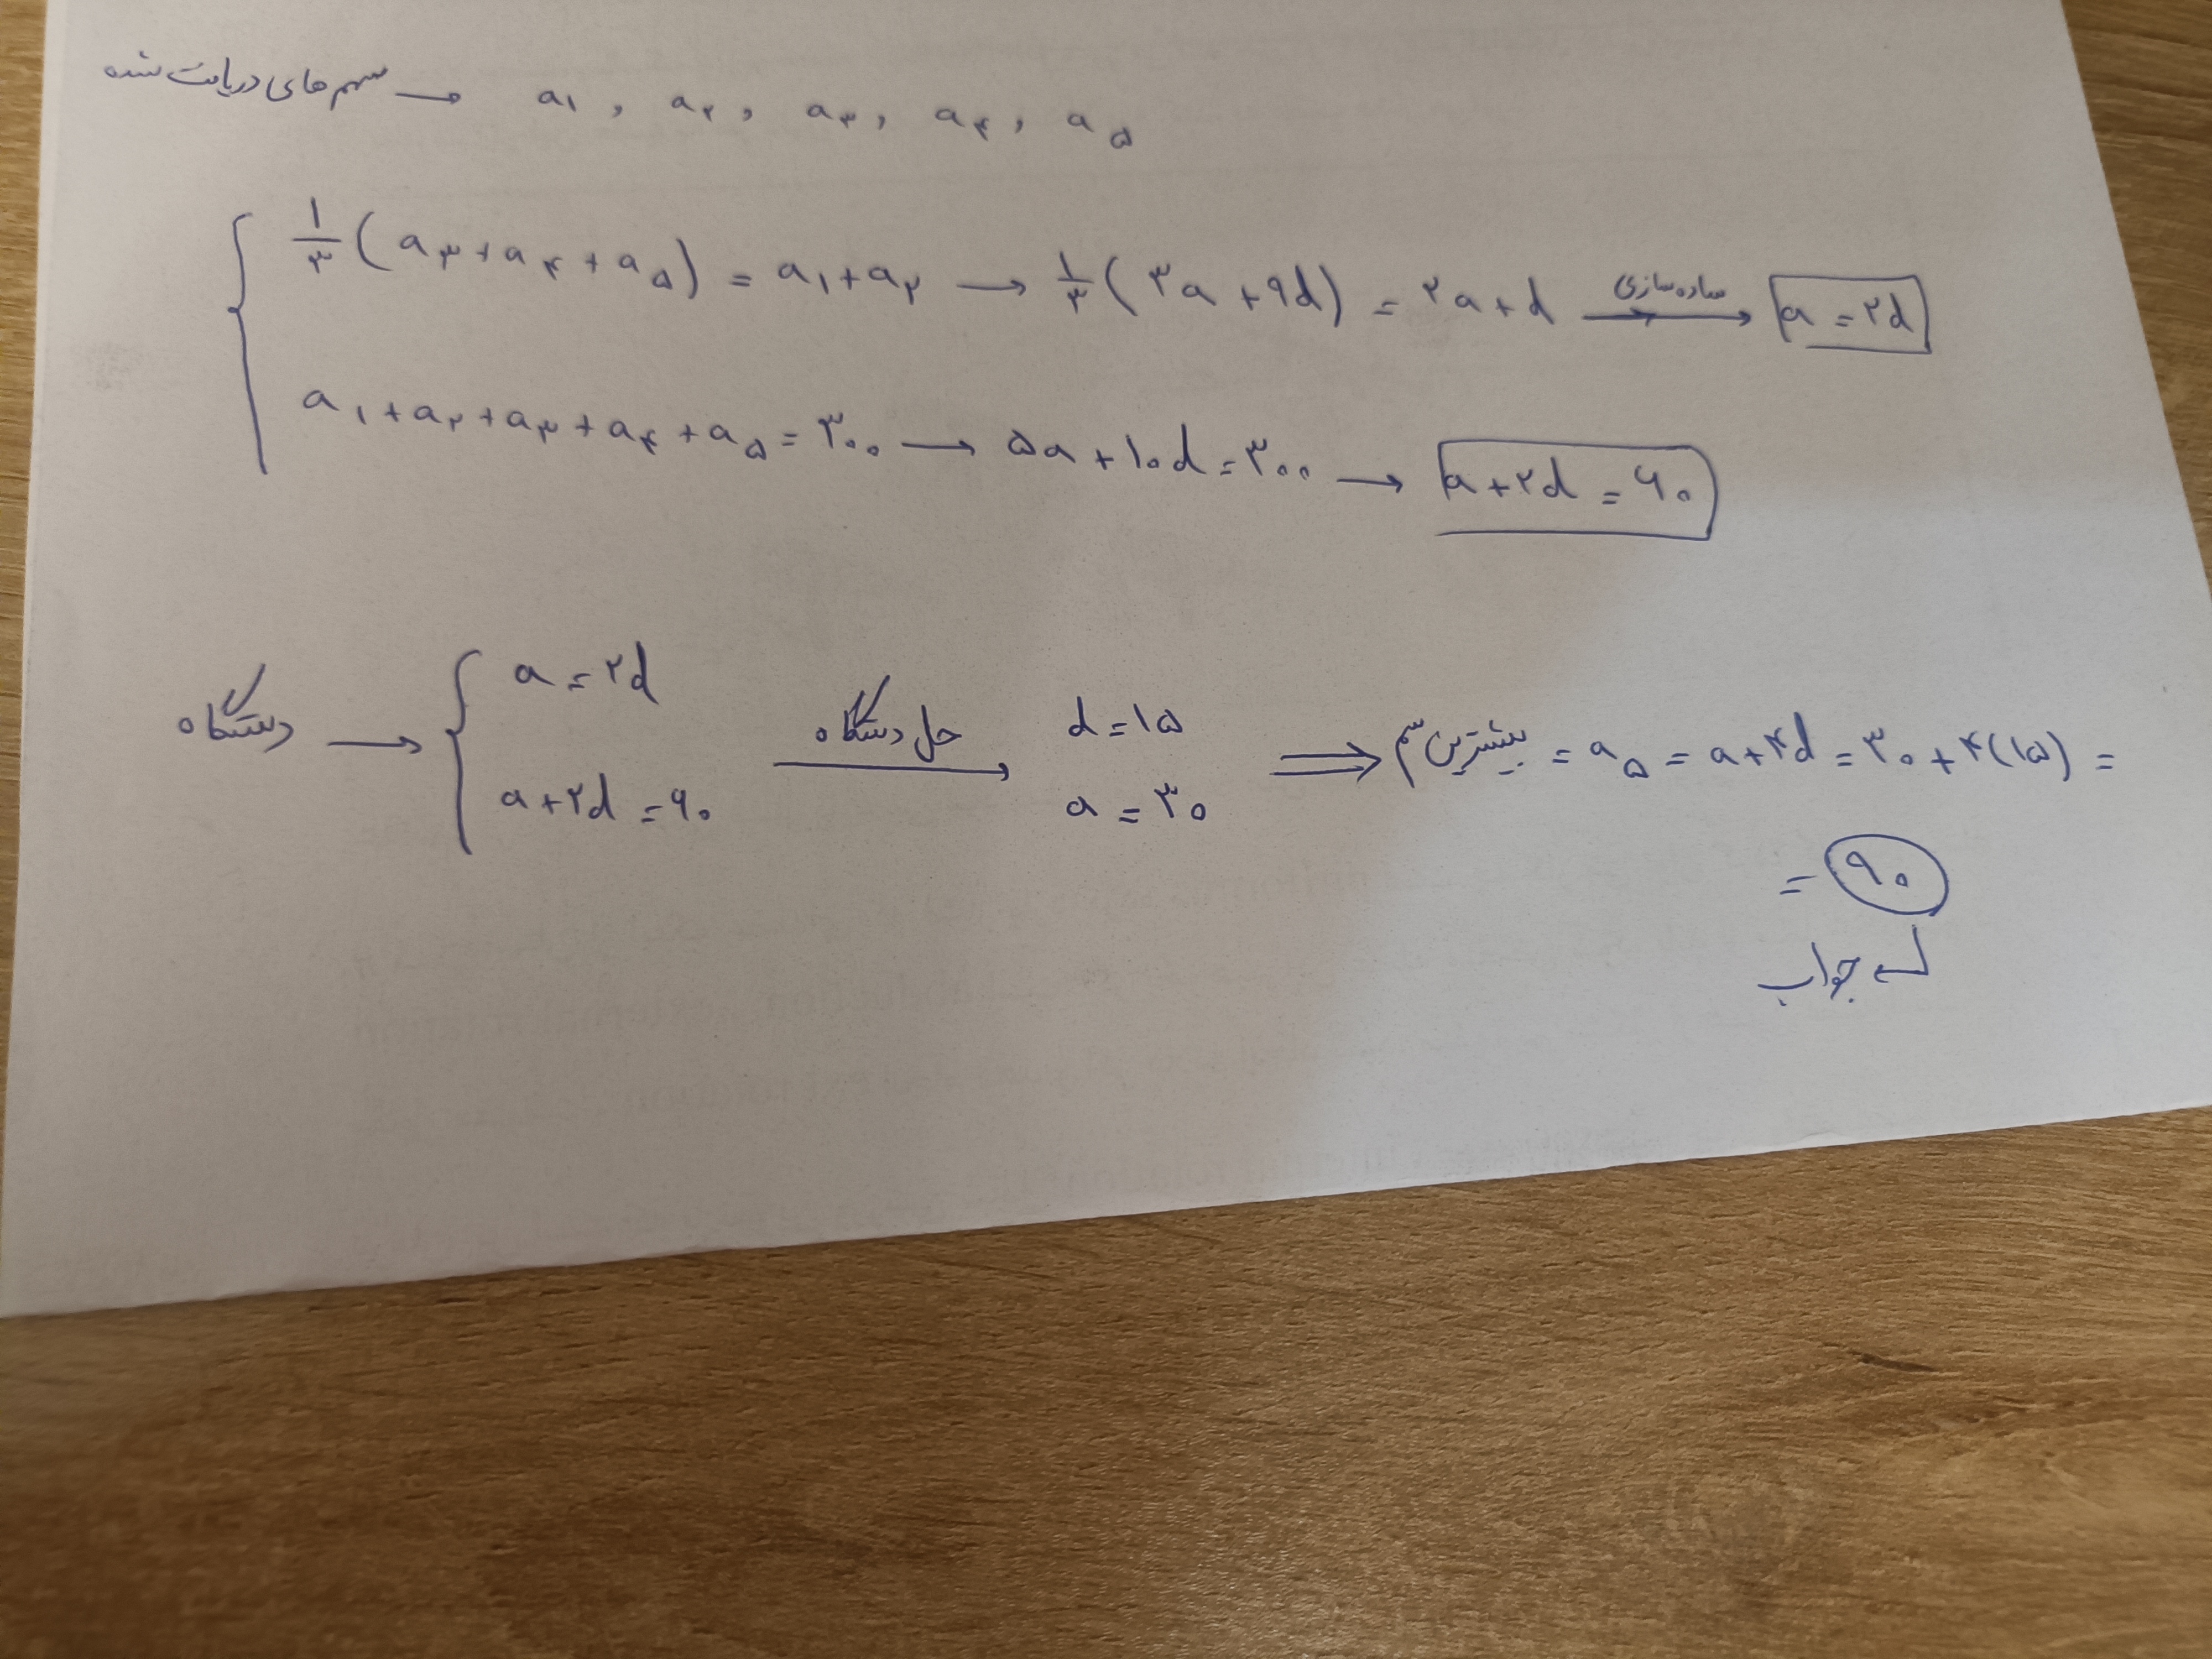 سهم های دریافت شده → a۱ , a۲ , a۳ , a۴ , a۵
۱/۳ (a۳ + a۴ + a۵) = a۱ + a۲ → ۱/۳ (۳a + ۹d) = ۲a + d ساده سازی → a = ۲d
a۱ + a۲ + a۳ + a۴ + a۵ = ۳۰۰ → ۵a + ۱۰d = ۳۰۰ → a + ۲d = ۶۰
دستگاه → { a = ۲d
a + ۲d = ۶۰
حل دستگاه → d = ۱۵
a = ۳۰
⇒ بیشترین سهم = a۵ = a + ۴d = ۳۰ + ۴(۱۵) =
= ۹۰
↳ جواب